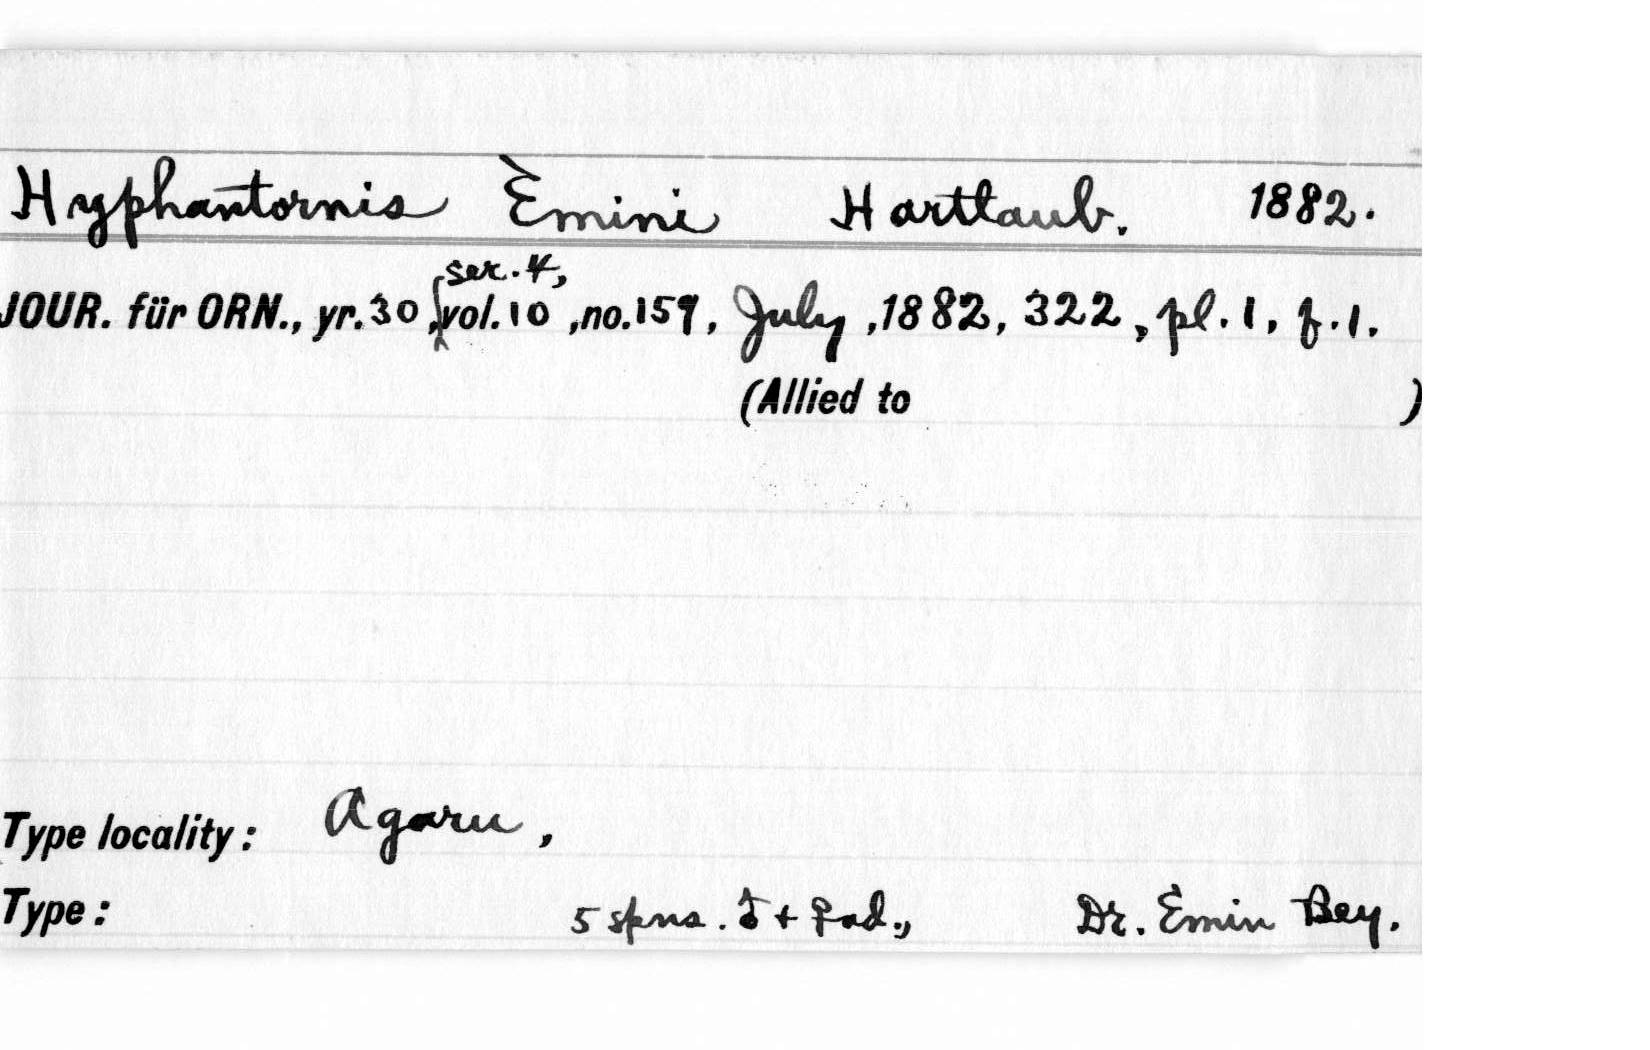 Hyphantornis Èmini Hartlaub. 1882.
JOUR. für ORN., yr. 30, ser. 4, vol. 10, no. 159, July, 1882, 322, pl. 1, f. 1.
(Allied to )
Type locality: Agaru,
Type: 5 spns. ♂ + ♀ ad., Dr. Émin Bey.